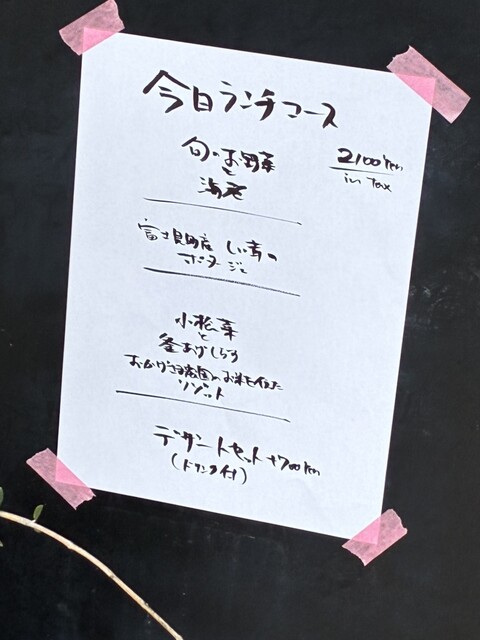 今日ランチコース
2100yen
in tax
旬のお野菜
と
海老
富士見町産 しい茸の
ポタージュ
小松菜
と
釜あげしらす
おかげさま農園のお米を使た
リゾット
デザートセット +700yen
(ドリンク付)